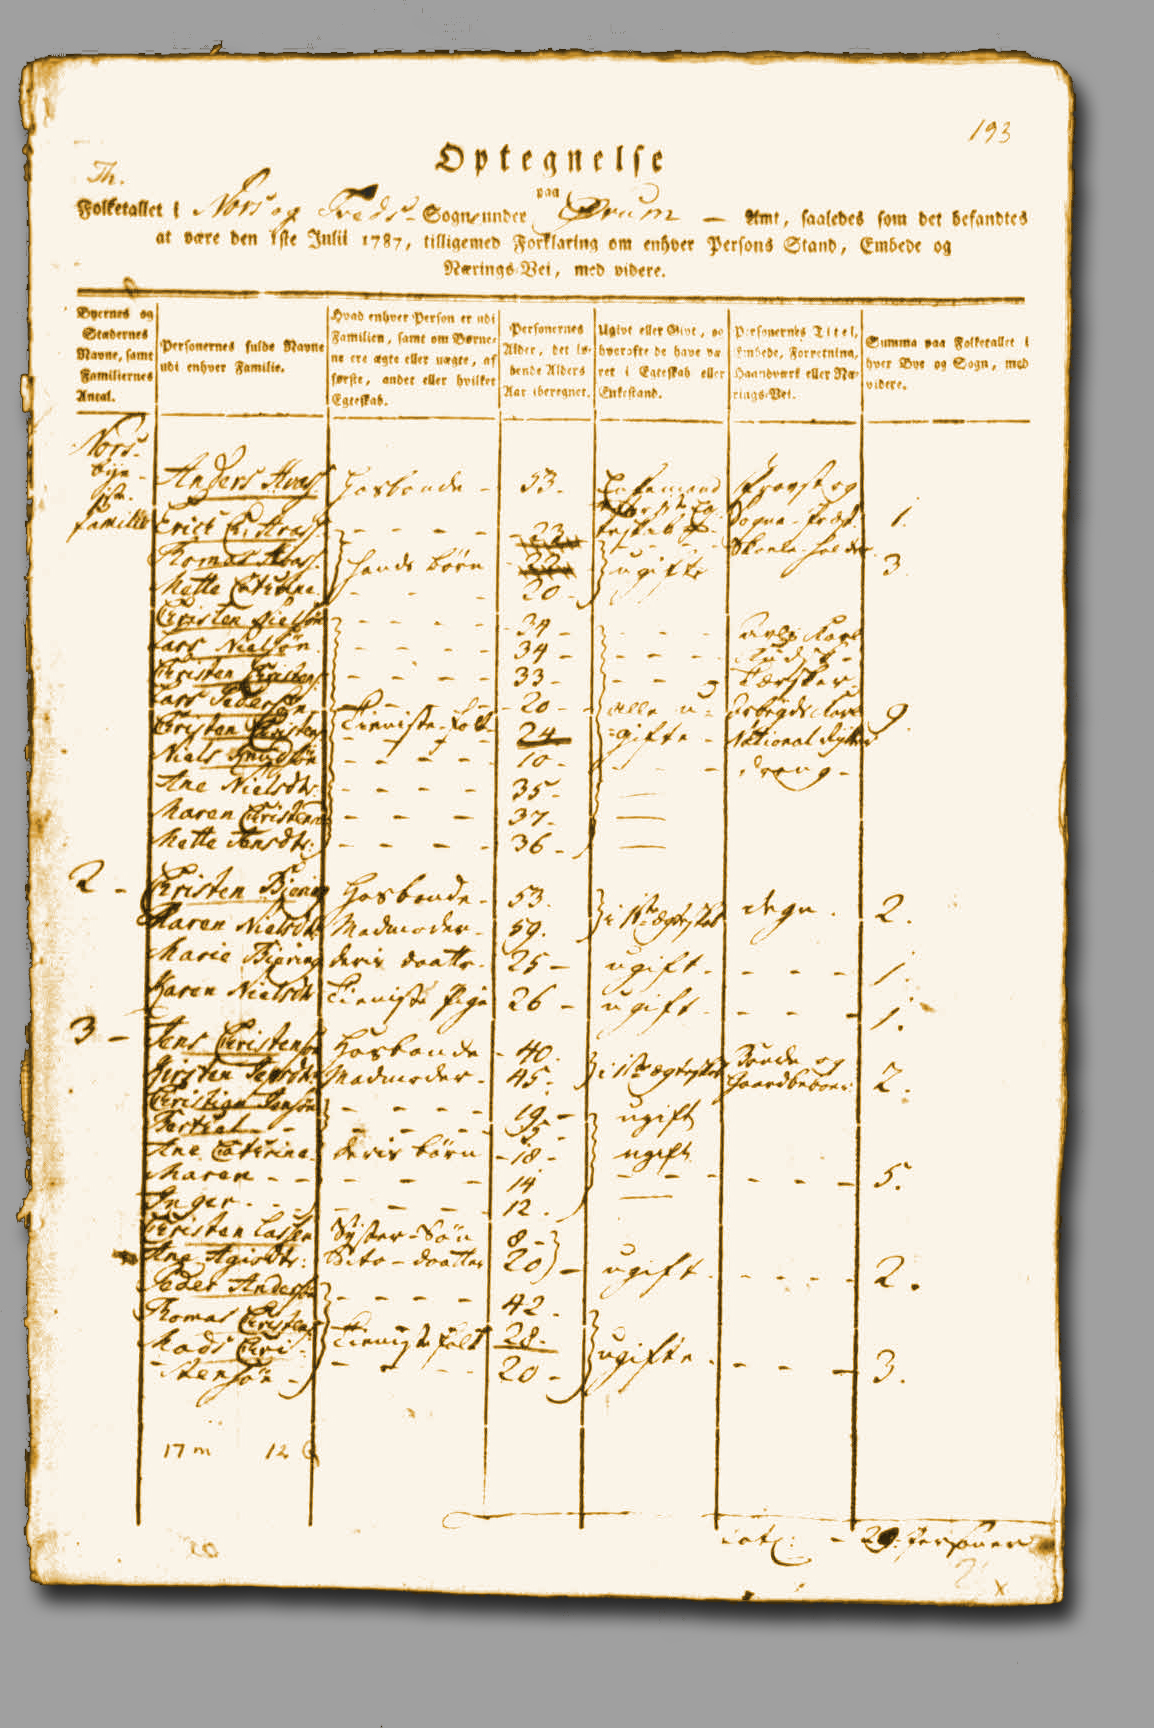 193
Optegnelse
paa
Th.
Folketallet i Nors og Treds- Sogne under Ørum — Amt, saaledes som det befandtes
at være den 1ste Julii 1787, tilligemed Forklaring om enhver Persons Stand, Embede og
Nærings-Vei, med videre.
Byernes og
Stædernes
Navne, samt
Familiernes
Antal.
Personernes fulde Navne
udi enhver Familie.
Hvad enhver Person er udi
Familien, samt om Børne-
ne ere ægte eller uægte, af
første, andet eller hvilket
Egteskab.
Personernes
Alder, det lø-
bende Alders
Aar iberegnet.
Ugivt eller Givt, og
hvorofte de have væ-
ret i Egteskab eller
Enkestand.
Personernes Titel,
Embede, Forretning,
Haandværk eller Næ-
rings-Vei.
Summa paa Folketallet i
hver Bye og Sogn, med
videre.
Nors-
bye-
familie
Anders Hvass Hosbonde - 53. Enkemand Provst og
Sogne-Præst 1.
Erick C. Hvass - - - - 23
Thomas Hvass. hands börn 22 ugifte Skoele-holder. 3.
Mette Catrine. - - - 20-
Christen Nielsön - - - - 34 - - - - Avls Karl
Lars Nielsön. - - - - 34 - - - - -
Christen Christens: - - - - 33 - - - Tærsker
Lars Pedersön - 20 - alle u- Arbeyds Karl 9.
Christen Christens Tieniste-folk 24 gifte - National Rytter
Niels Knudsön - - - - 10- - - dreng -
Ane Nielsdtr. - - - - 35-
Maren Christens - - - 37-
Mette Jensdtr: - - - - 36-
2 - Christen Biering Hosbonde - 53. i 1ste ægteskab degn. 2.
Maren Nielsdtr Madmoder- 59.
Marie Biering deris daatter- 25- ugift - - - - 1.
Karen Nielsdtr Tieniste Pige 26 - ugift - - - - 1.
3 - Jens Christensön Hosbonde - 40. i 1ste ægteskab Bonde og 2.
Kirsten Jensdtr Madmoder- 45. Gaardbeboer.
Christian Jensön - - - - 19- ugift
Bertel - - - - - 15 -
Ane Catrine. deris börn - 18 - ugift
Maren - - - - - 14 - - - - - - 5.
Inger - - - - - 12.
Christen Lassen Syster-Sön 8 -
Ane - dtr: Dito-daatter 20 - ugift - - - - 2.
Peder Andersön - - - - 42.
Thomas Christens: Tieniste folk 28.
Mads Chri- ugifte - - - - 3.
-stensön - - - - 20 -
17 m 12 Q
Lat: - 29. Personer
x